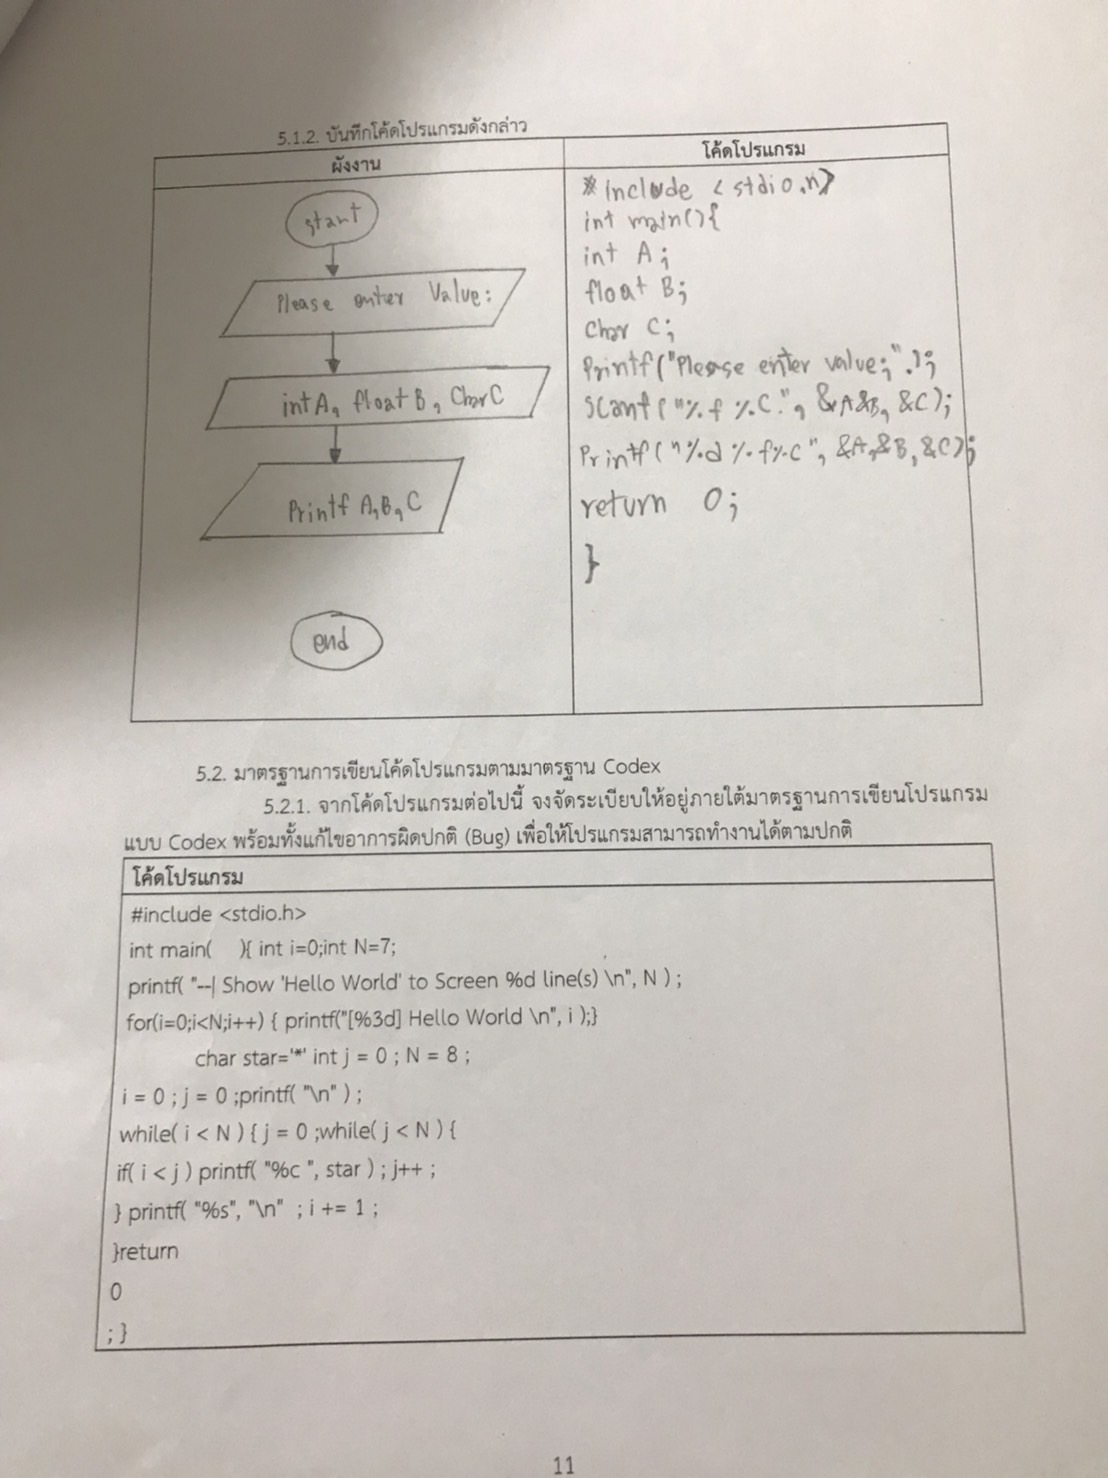 5.1.2. บันทึกโค้ดโปรแกรมดังกล่าว
ผังงาน
start
Please enter Value:
int A, float B, Char C
Printf A,B,C
end
โค้ดโปรแกรม
#include <stdio.h>
int main(){
int A;
float B;
Char C;
Printf("Please enter value;".);
Scanf("%.f %.C.", &A&B, &C);
Printf("%.d %.f%.C", &A,&B,&C);
return 0;
}
5.2. มาตรฐานการเขียนโค้ดโปรแกรมตามมาตรฐาน Codex
5.2.1. จากโค้ดโปรแกรมต่อไปนี้ จงจัดระเบียบให้อยู่ภายใต้มาตรฐานการเขียนโปรแกรม
แบบ Codex พร้อมทั้งแก้ไขอาการผิดปกติ (Bug) เพื่อให้โปรแกรมสามารถทำงานได้ตามปกติ
โค้ดโปรแกรม
#include <stdio.h>
int main( ){ int i=0;int N=7;
printf( "--| Show 'Hello World' to Screen %d line(s) \n", N ) ;
for(i=0;i<N;i++) { printf("[%3d] Hello World \n", i );}
char star='*' int j = 0 ; N = 8 ;
i = 0 ; j = 0 ;printf( "\n" ) ;
while( i < N ) { j = 0 ;while( j < N ) {
if( i < j ) printf( "%c ", star ) ; j++ ;
} printf( "%s", "\n" ; i += 1 ;
}return
0
; }
11